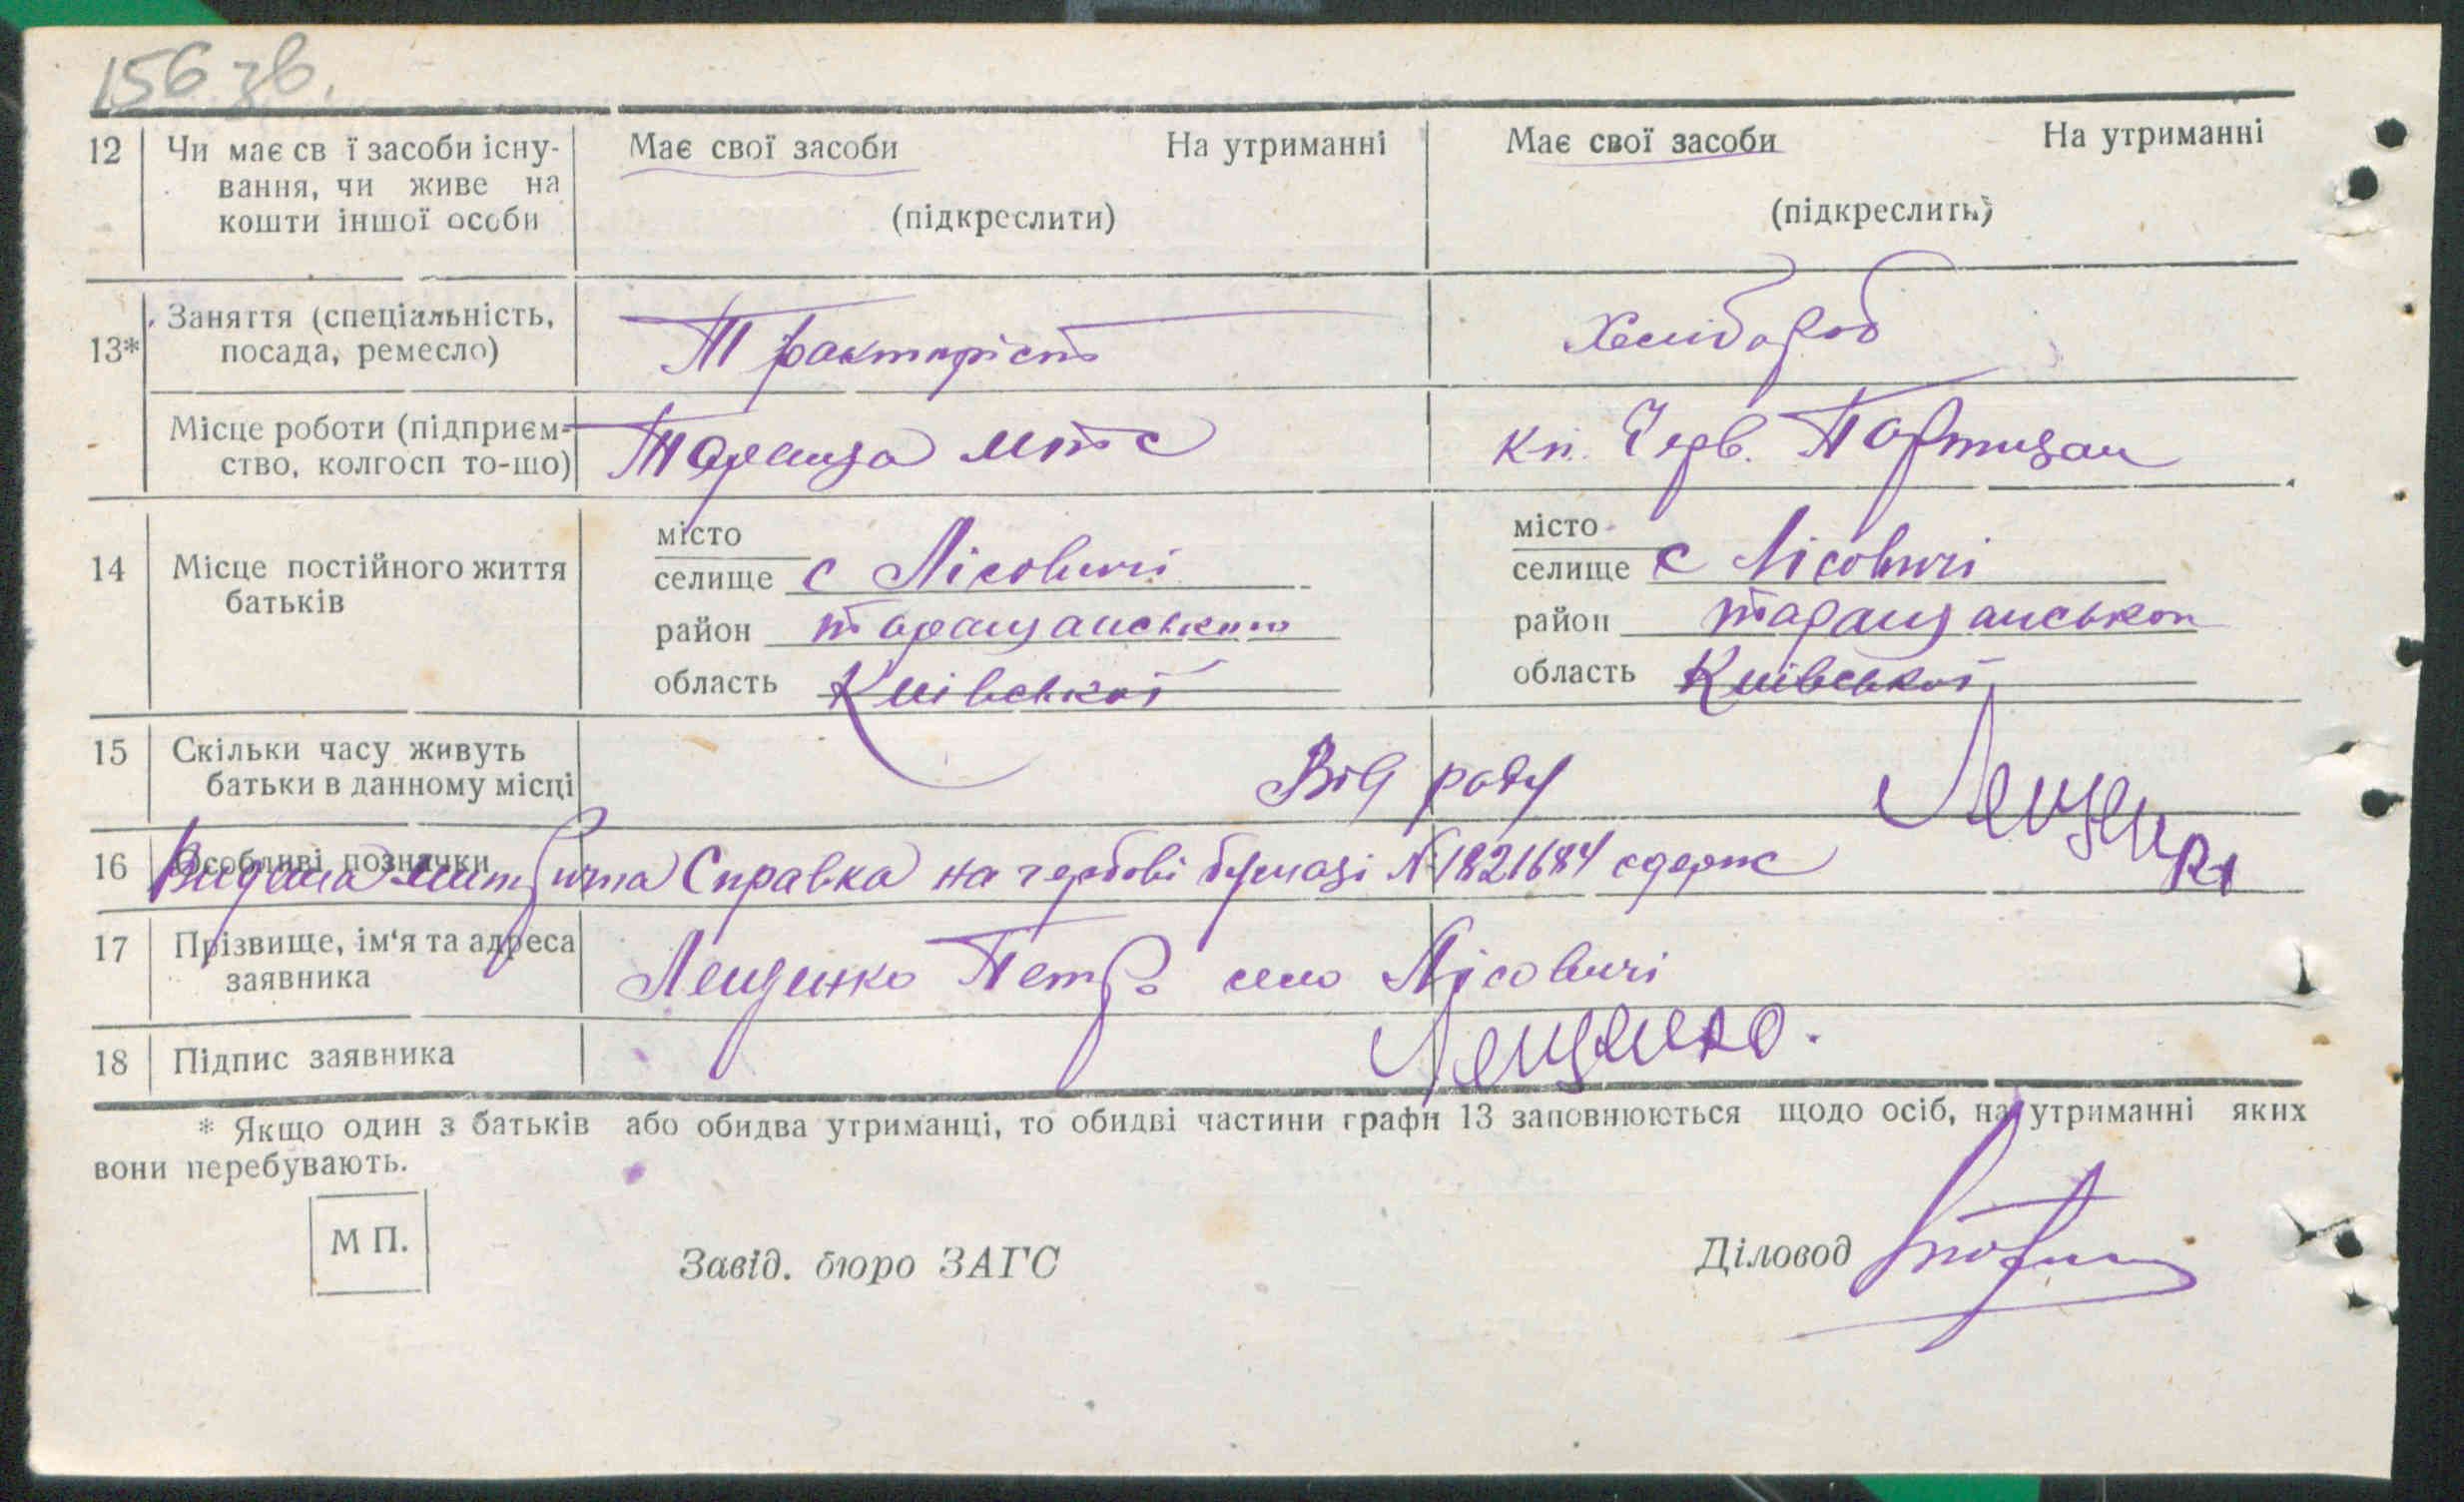 156 зв.
12 Чи має св ї засоби існу- Має свої засоби На утриманні Має свої засоби На утриманні
вання, чи живе на
кошти іншої особи (підкреслити) (підкреслить)
13* Заняття (спеціальність, Тракторіст Хлібороб
посада, ремесло)
Місце роботи (підприєм- Тараща мтс кп. Черв. Партизан
ство, колгосп то-що)
14 Місце постійного життя місто місто
батьків селище с Лісовичі селище с Лісовичі
район таращанського район таращанського
область Київської область Київської
15 Скільки часу живуть Від роду
батьки в данному місці
16 Особливі позначки Видана метрична Справка на гербові бумазі № 1821684 одерж Лещенко
17 Прізвище, ім'я та адреса Лещенко Петро село Лісовичі
заявника
18 Підпис заявника Лещенко.
* Якщо один з батьків або обидва утриманці, то обидві частини графи 13 заповнюються щодо осіб, на утриманні яких
вони перебувають.
М П. Завід. бюро ЗАГС Діловод